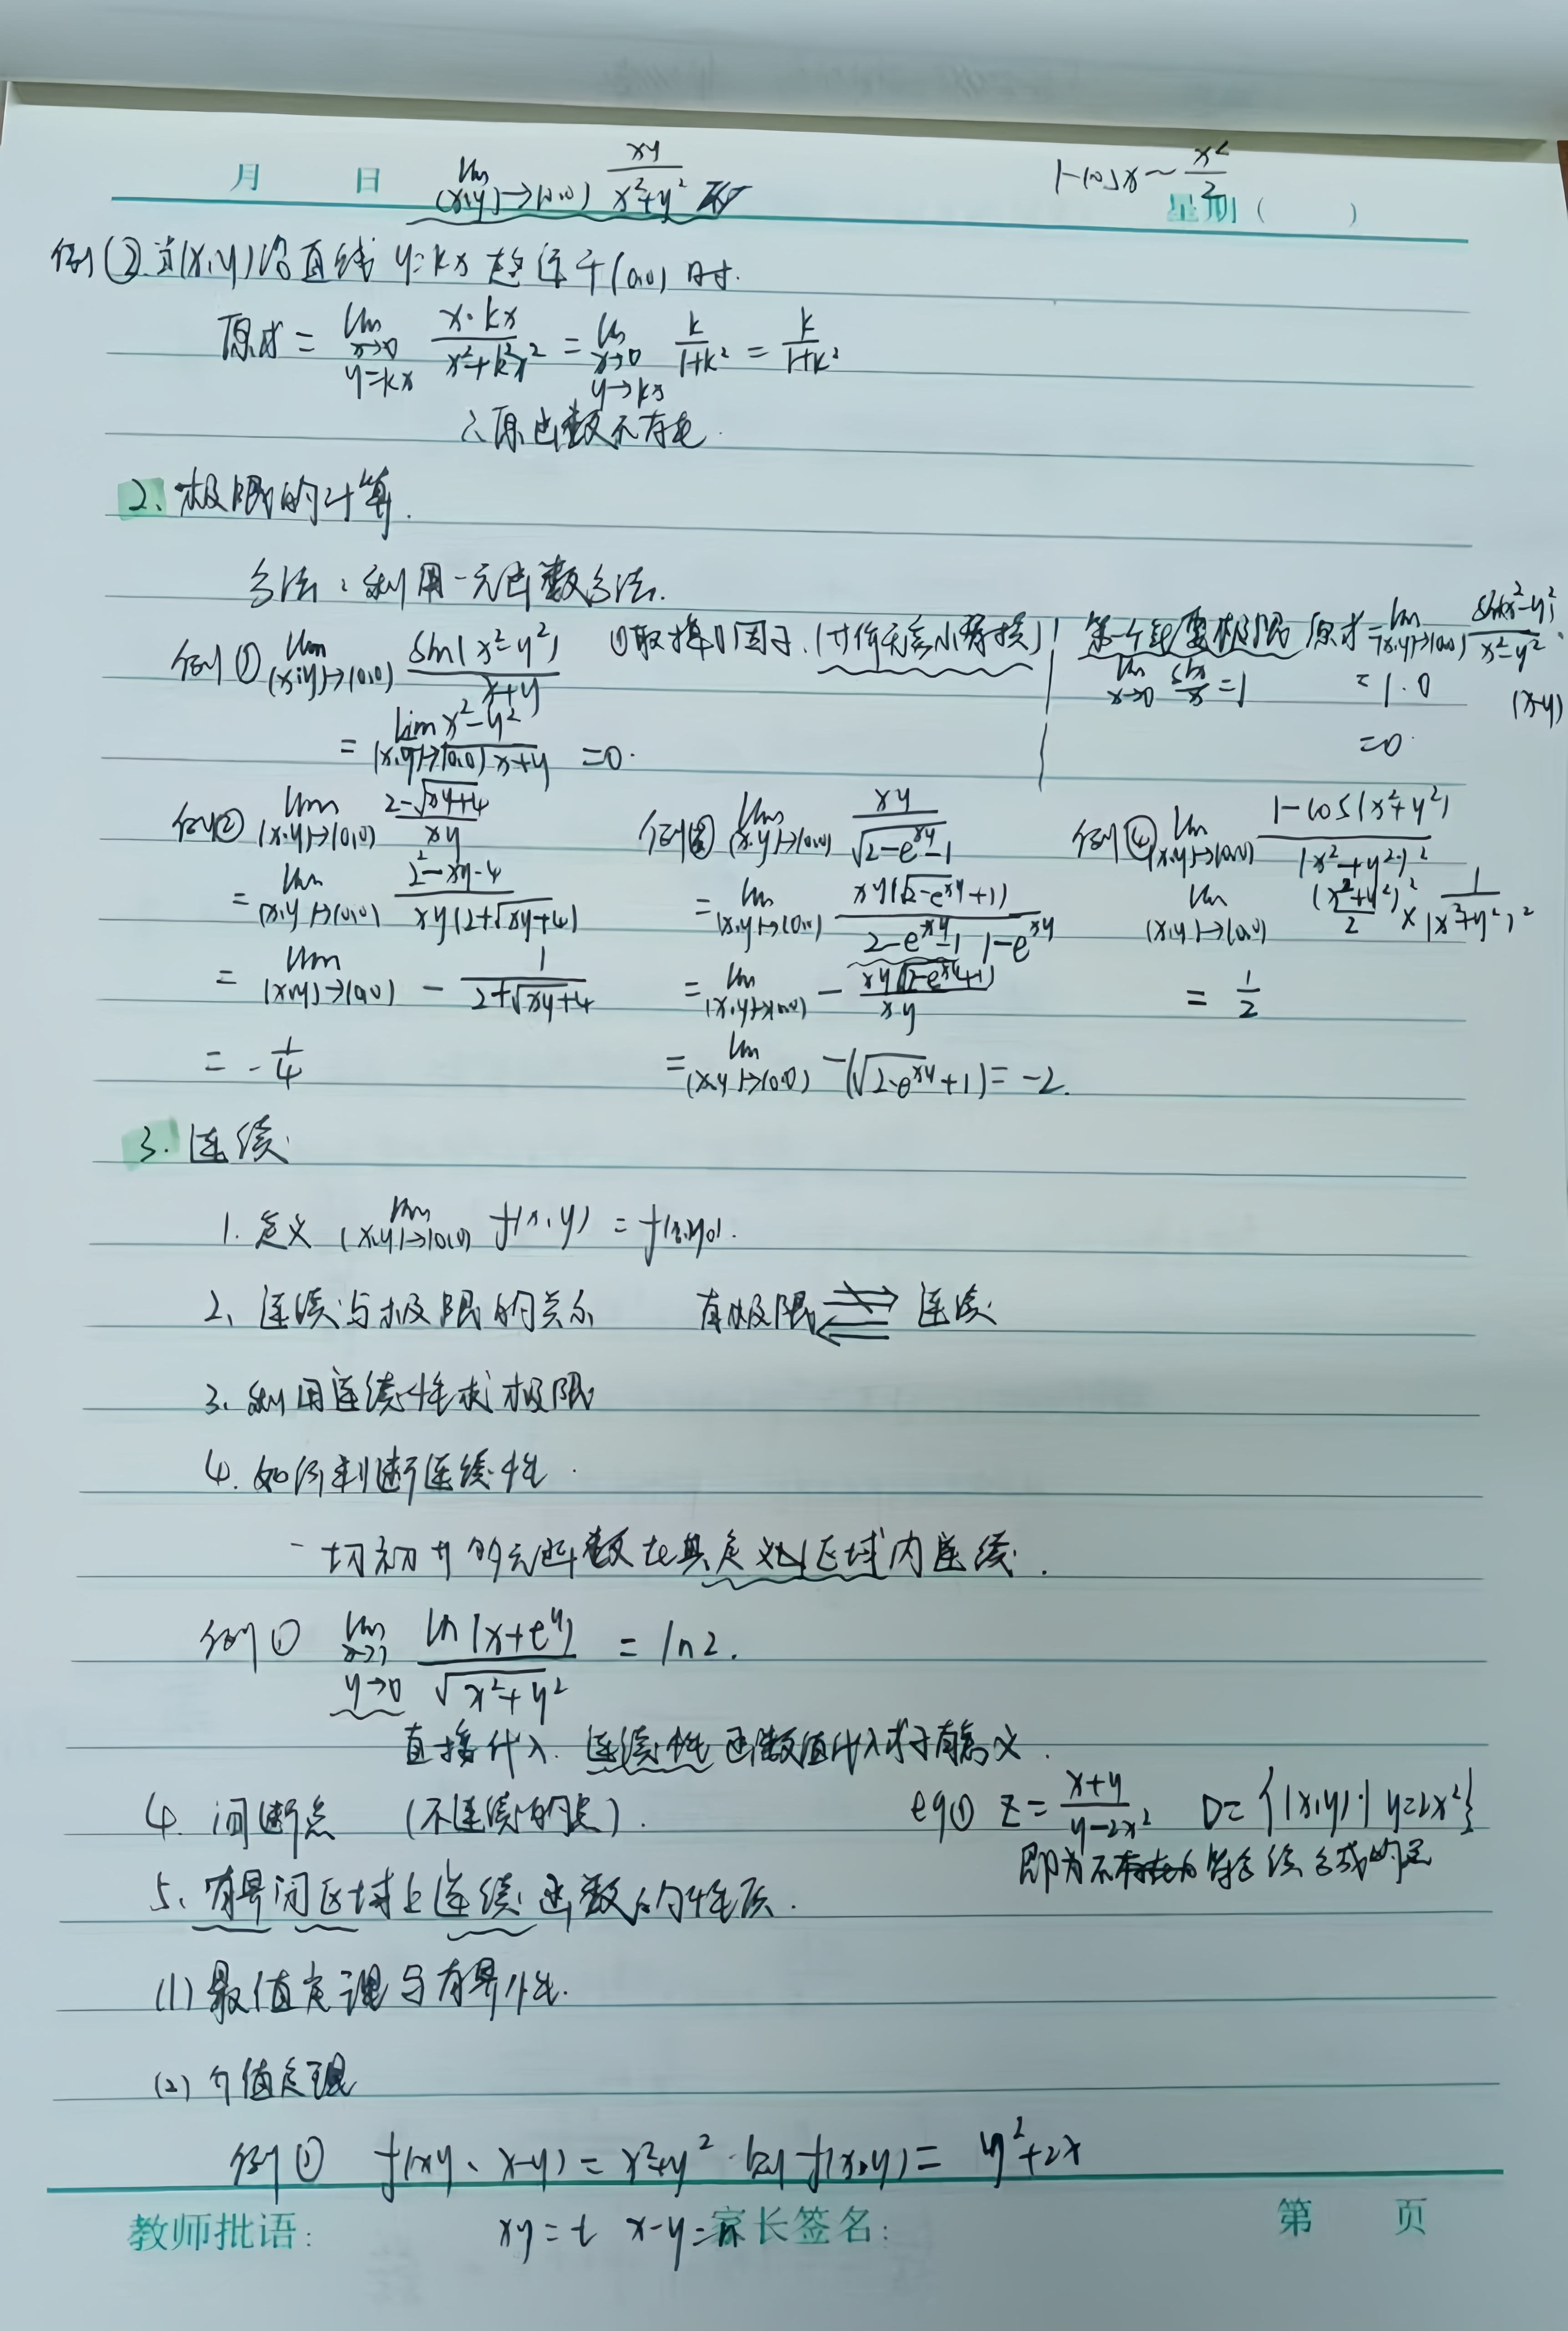 月 日 lim (x,y)→(0,0) xy/(x²+y²) 1-cosx~x²/2
星期( )
例② 当(x,y)沿直线 y=kx 趋近于(0,0)时.
原式= lim x→0 y=kx x·kx/(x²+k²x²) = lim x→0 y→kx k/(1+k²) = k/(1+k²)
∴原函数不存在.
2、极限的计算.
方法:利用一元函数方法.
例① lim (x,y)→(0,0) sin(x²-y²)/(x+y) ①取掉0因子.(等价无穷小替换) 第一个重要极限 原式=lim (x,y)→(0,0) sin(x²-y²)/(x²-y²)·(x-y)
lim x→0 sinx/x=1 =1·0
= lim (x,y)→(0,0) (x²-y²)/(x+y) =0. =0.
例② lim (x,y)→(0,0) (2-√(xy+4))/xy 例③ lim (x,y)→(0,0) xy/(√(2-e^xy)-1) 例④ lim (x,y)→(0,0) (1-cos(x²+y²))/(x²+y²)²
= lim (x,y)→(0,0) (2²-xy-4)/(xy(2+√(xy+4))) = lim (x,y)→(0,0) xy(√(2-e^xy)+1)/(2-e^xy-1) 1-e^xy lim (x,y)→(0,0) (x²+y²)²/2 × 1/(x²+y²)²
= lim (x,y)→(0,0) - 1/(2+√(xy+4)) = lim (x,y)→(0,0) - xy(√(2-e^xy)+1)/xy = 1/2
= -1/4 = lim (x,y)→(0,0) -(√(2-e^xy)+1)= -2.
3. 连续
1. 定义 lim (x,y)→(0,0) f(x,y) = f(x₀,y₀).
2、连续与极限的关系 有极限 ⇏ ⇐ 连续
3、利用连续性求极限
4. 如何判断连续性.
一切初等多元函数在其定义区域内连续.
例① lim x→1 y→0 ln(x+e^y)/√(x²+y²) = ln2.
直接代入. 连续性 函数值代入式子有意义.
4. 间断点 (不连续的点). eg① z= (x+y)/(y-2x²) D={(x,y)·| y=2x²}
即为不
5、有界闭区域上连续函数的性质.
(1) 最值定理与有界性.
(2) 介值定理
例① f(xy、x-y)= x²+y² f(x,y)= y²+2x
教师批语: xy=t x-y= 家长签名: 第 页